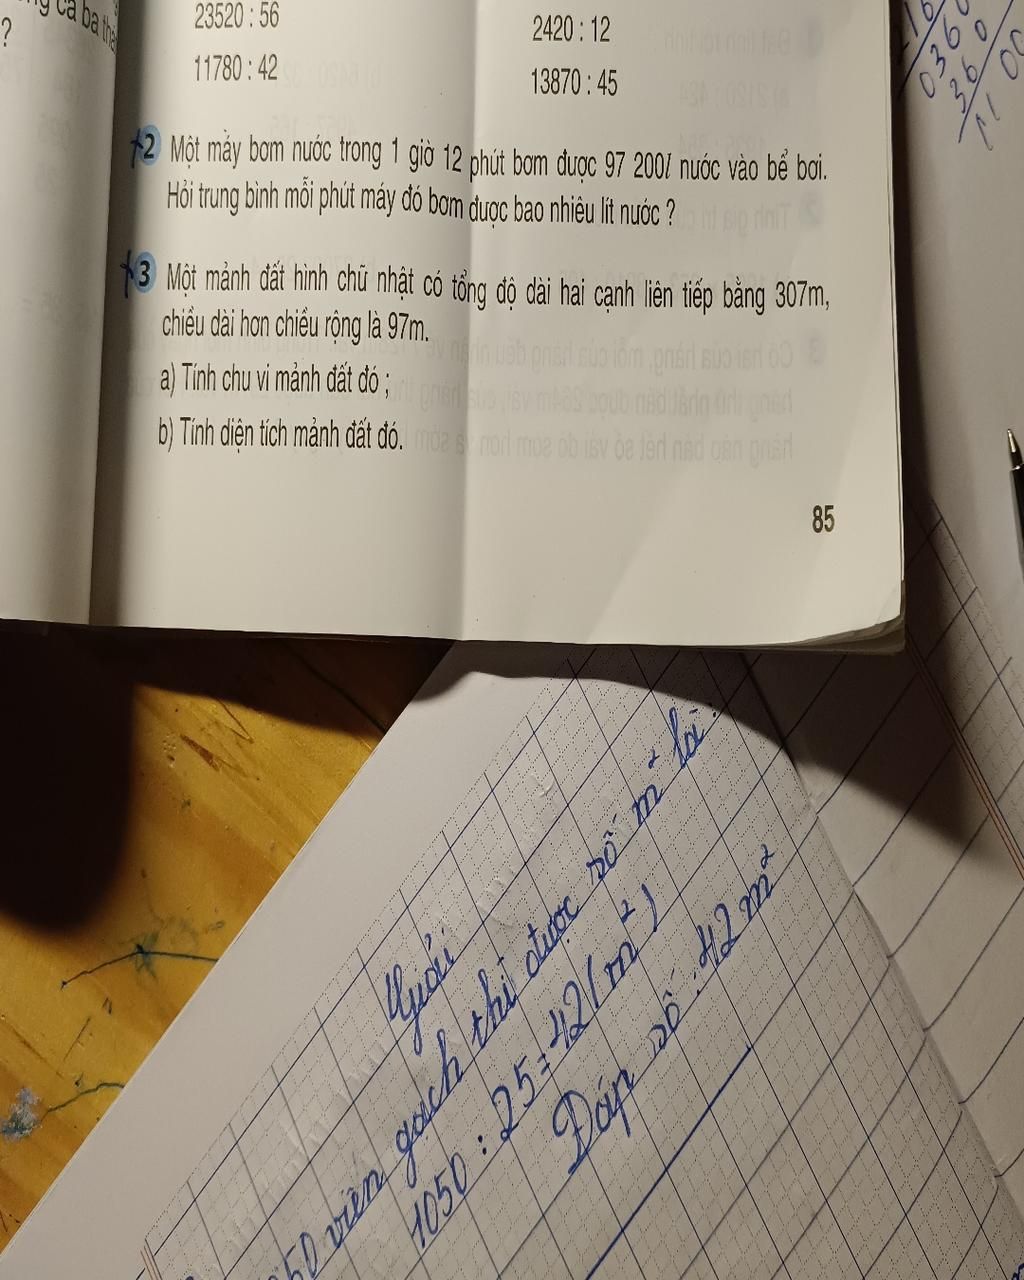 ca ba
?
23520 : 56
2420 : 12
11780 : 42
13870 : 45
2 Một máy bơm nước trong 1 giờ 12 phút bơm được 97 200l nước vào bể bơi.
Hỏi trung bình mỗi phút máy đó bơm được bao nhiêu lít nước ?
3 Một mảnh đất hình chữ nhật có tổng độ dài hai cạnh liên tiếp bằng 307m,
chiều dài hơn chiều rộng là 97m.
a) Tính chu vi mảnh đất đó ;
b) Tính diện tích mảnh đất đó.
85
036
36
Giải
viên gạch thì được số m² là :
1050 : 25 = 42 ( m² )
Đáp số : 42 m²